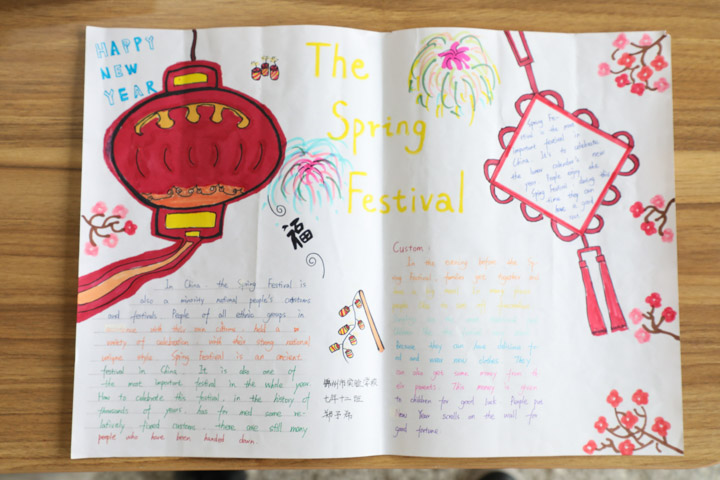 HAPPY
NEW
YEAR
The
Spring
Festival
福
Spring Fe-
stival is the most
important festival in
China. It's to celebrate
the lunar calendar's new
year. People enjoy the
Spring Festival, during this
time they can
have a good
In China, the Spring Festival is
also a minority national people's customs
and festivals. People of all ethnic groups in
with their own customs, held a
variety of celebration with their strong national
unique style. Spring Festival is an ancient
festival in China. It is also one of
the most important festival in the whole year.
How to celebrate this festival, in the history of
thousands of years, has formed some re-
latively fixed customs, there are still many
people who have been handed down.
Custom:
In the evening before the Spr-
ing Festival, families get together and
because they can have delicious fo-
od and wear new clothes. They
can also get some money from th-
eir parents. This money is given
to children for good luck. People put
New Year scrolls on the wall for
good fortune.
市实验学校
七年十二班